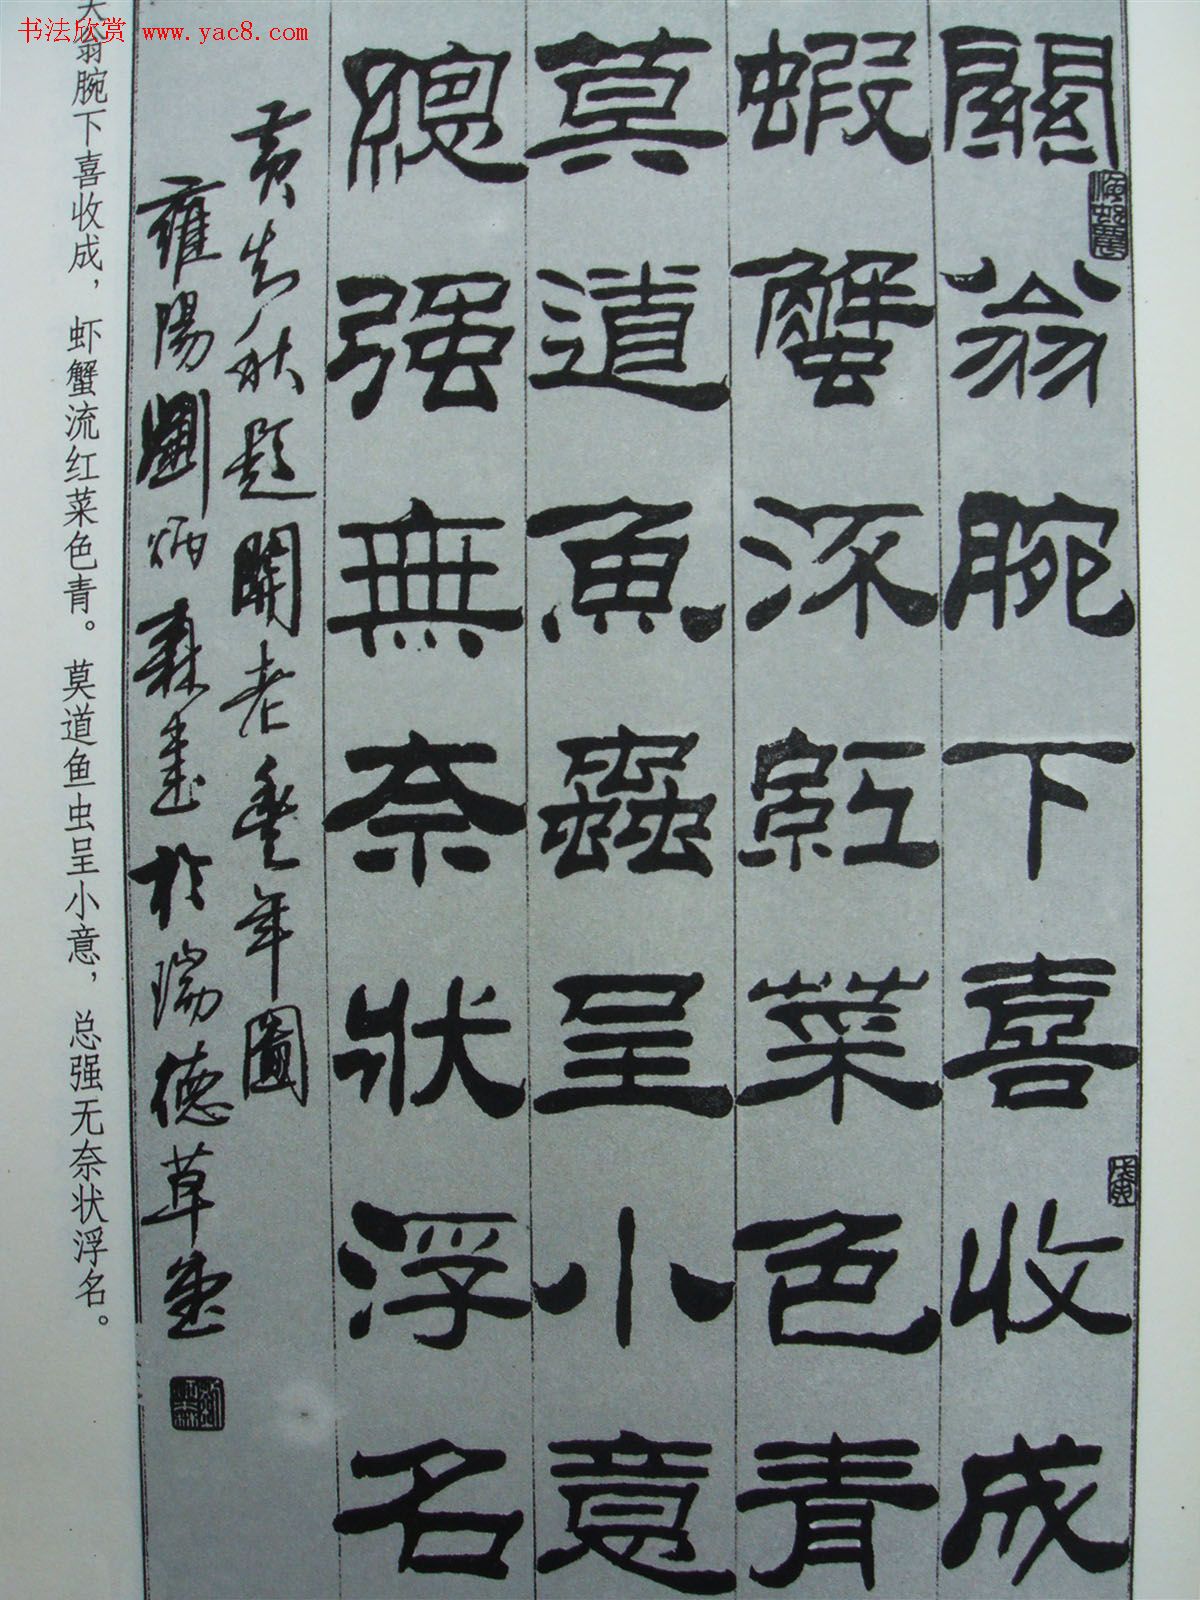 书法欣赏 www.yac8.com
關翁腕下喜收成
蝦蟹流紅菜色青
莫道魚蟲呈小意
總强無奈狀浮名
黄知秋題關老豐年圖
雍陽劉炳森書於瑞德草堂
戊寅
翁腕下喜收成，虾蟹流红菜色青。莫道鱼虫呈小意，总强无奈状浮名。